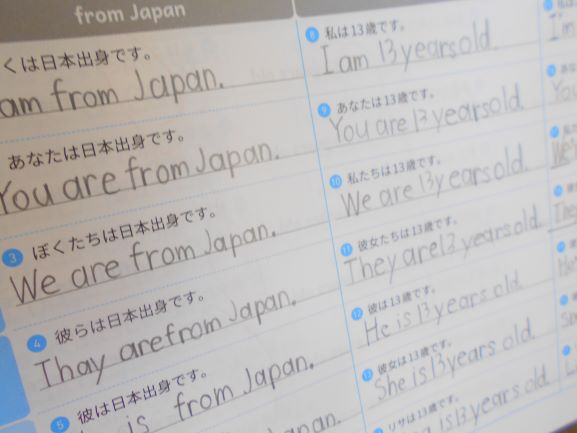 from Japan
くは日本出身です。
am from Japan.
あなたは日本出身です。
You are from Japan.
3 ぼくたちは日本出身です。
We are from Japan.
4 彼らは日本出身です。
Thay are from Japan.
5 彼は日本出身です。
is from Japan.
apan.
8 私は13歳です。
I am 13 years old.
9 あなたは13歳です。
You are 13 years old.
10 私たちは13歳です。
We are 13 years old.
11 彼女たちは13歳です。
They are 13 years old.
12 彼は13歳です。
He is 13 years old.
13 彼女は13歳です。
She is 13 years old.
リサは13歳です。
is 13 years old.
I'm
You
We
The
He
She